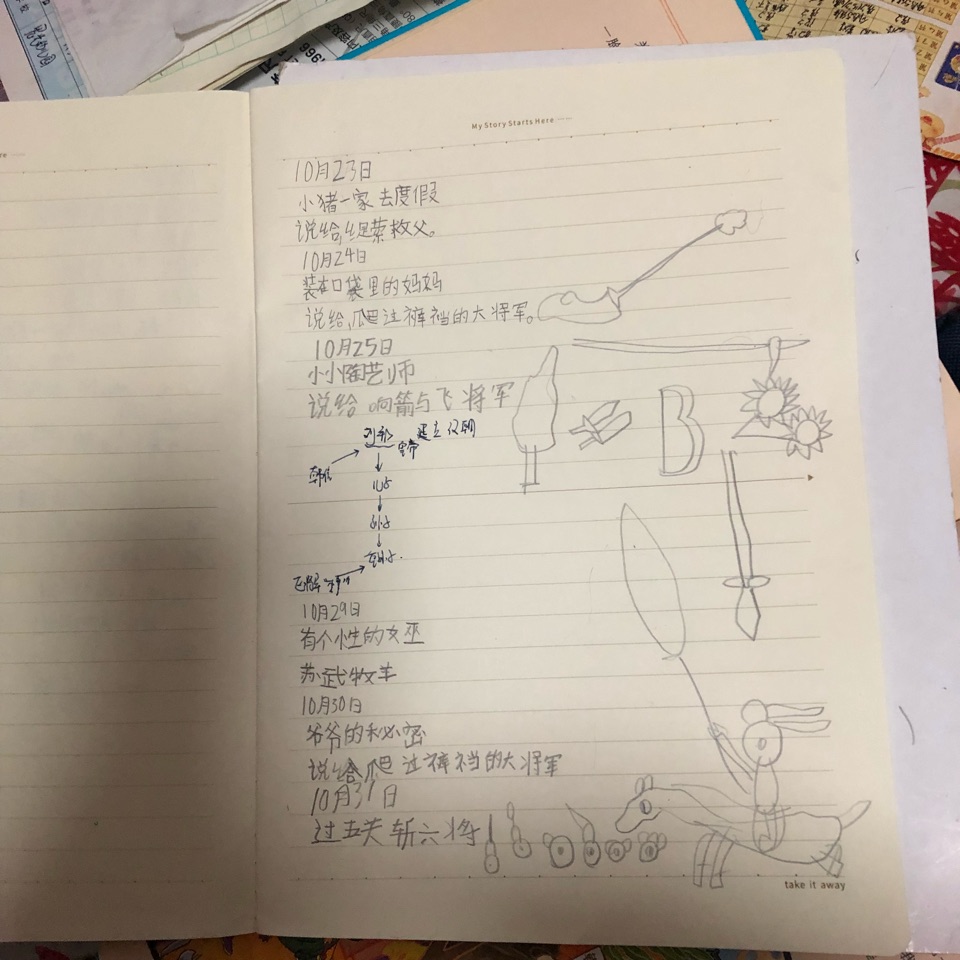 My Story Starts Here ……
10月23日
小猪一家去度假
说给,缇萦救父。
10月24日
装在口袋里的妈妈
说给,爬过裤裆的大将军。
10月25日
小小陶艺师
说给 响箭与飞将军
刘邦 皇帝 建立汉朝
韩信
儿子
孙子
10月29日
有个性的女巫
苏武牧羊
10月30日
爷爷的秘密
说给爬过裤裆的大将军
10月31日
过五关斩六将
B
take it away
1966